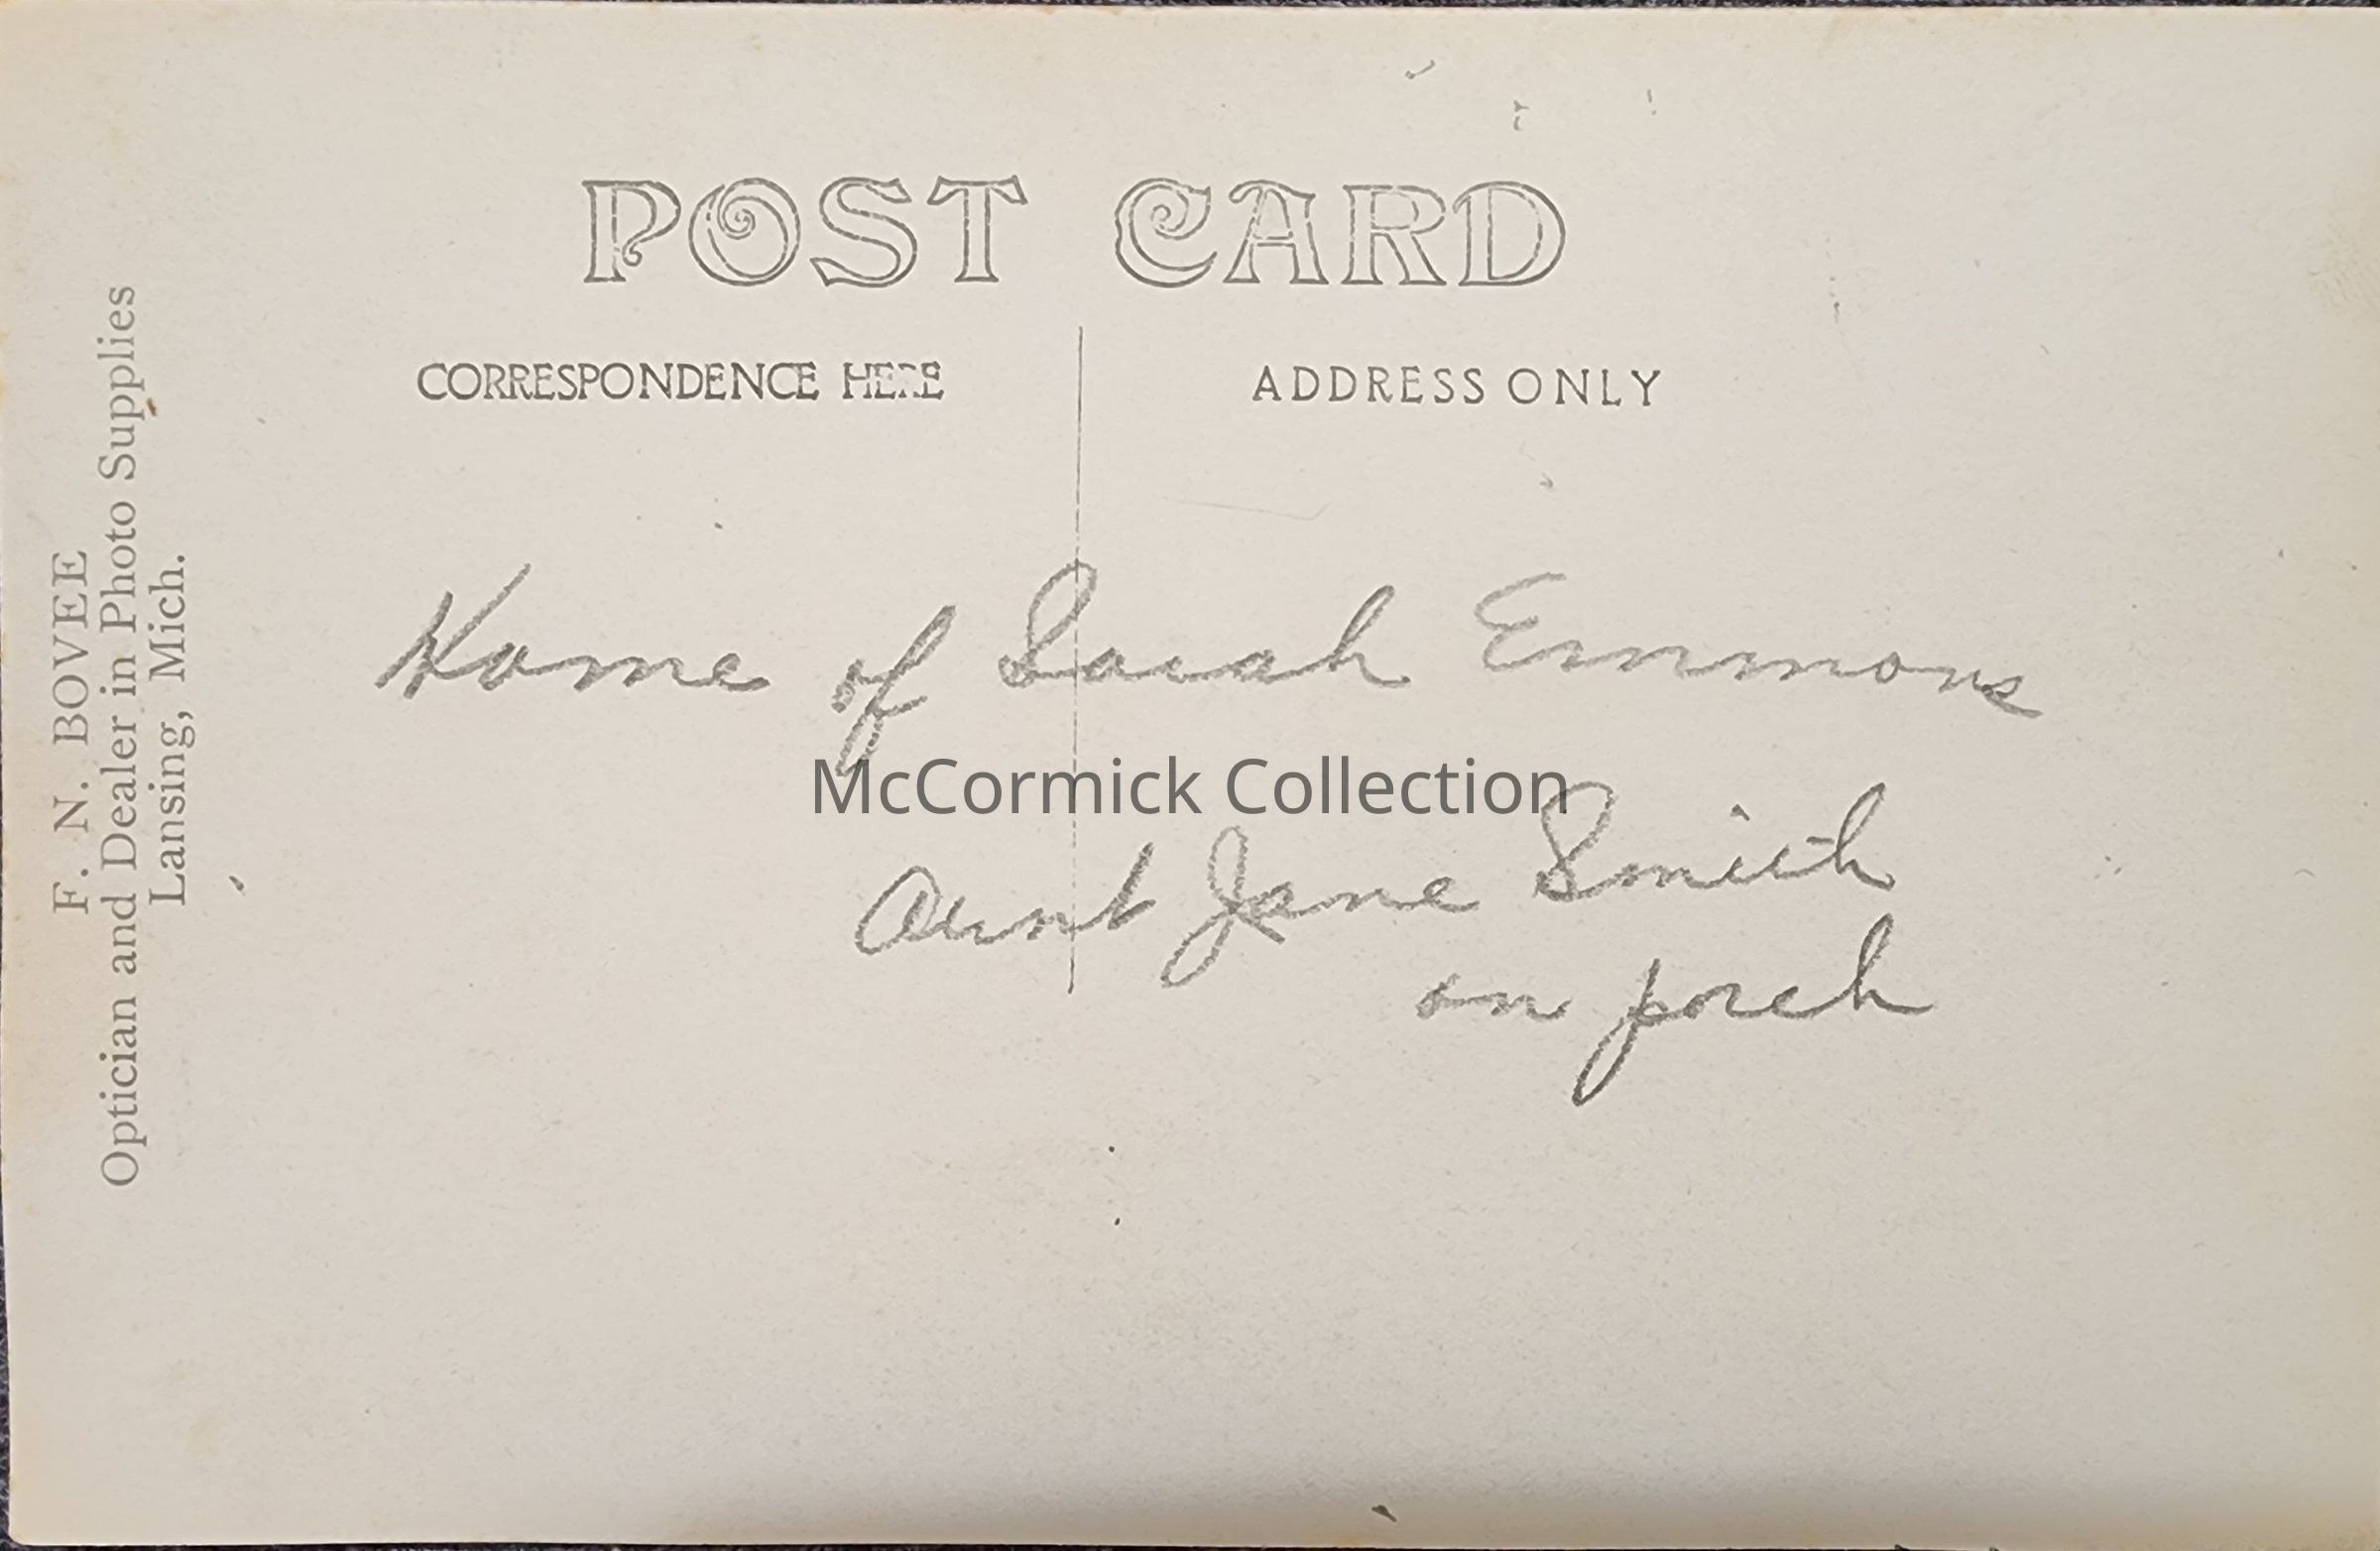 POST CARD
CORRESPONDENCE HERE
ADDRESS ONLY
F. N. BOVEE
Optician and Dealer in Photo Supplies
Lansing, Mich.
Home of Sarah Emmons
McCormick Collection
Aunt Jane Smith
on porch